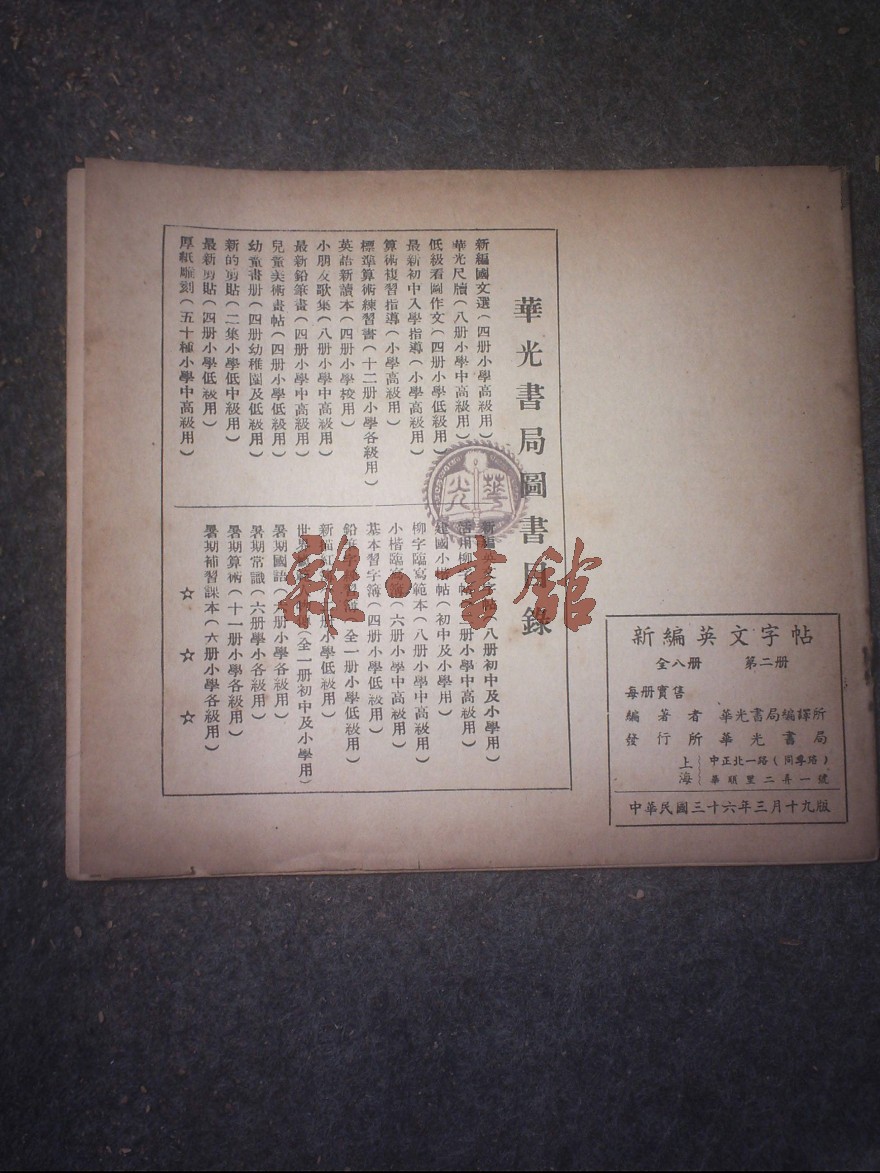 華光書局圖書目錄
新編國文選(四册小學高級用)
華光尺牘(八册小學中高級用)
低級看圖作文(四册小學低級用)
最新初中入學指導(小學高級用)
算術複習指導(小學高級用)
標準算術練習書(十二册小學各級用)
英語新讀本(四册小學校用)
小朋友歌集(八册小學中高級用)
最新鉛筆畫(四册小學中高級用)
兒童美術畫帖(四册小學低級用)
幼童畫册(四册幼稚園及低級用)
新的剪貼(二集小學低中級用)
最新剪貼(四册小學低級用)
厚紙雕劉(五十種小學中高級用)
新編英文字帖(八册初中及小學用)
活用柳字帖 册小學中高級用)
建國小楷帖(初中及小學用)
柳字臨寫範本(八册小學中高級用)
小楷臨寫簿(六册小學中高級用)
基本習字簿(四册小學低級用)
鉛 字 全一册小學低級用)
新描紅 册小學低級用)
世界 (全一册初中及小學用)
暑期國語(六册小學各級用)
暑期常識(六册學小各級用)
暑期算術(十一册小學各級用)
暑期補習課本(六册小學各級用)
☆ ☆ ☆
光華
雜·書館
新編英文字帖
全八册 第二册
每册實售
編著者 華光書局編譯所
發行所 華光書局
上海 中正北一路(同孚路)
華順里二弄一號
中華民國三十六年三月十九版